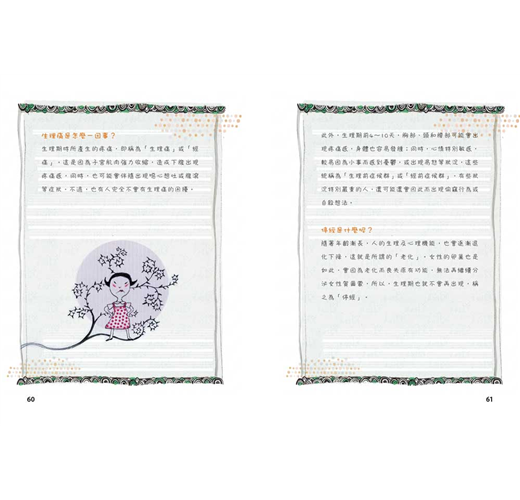 生理痛是怎麼一回事？
生理期時所產生的疼痛，即稱為「生理痛」或「經
痛」。這是因為子宮肌肉強力收縮，造成下腹出現
疼痛感。同時，也可能會伴隨出現噁心想吐或腹瀉
等症狀。不過，也有人完全不會有生理痛的困擾。
60
此外，生理期前4～10天，胸部、頭和腰部可能會出
現疼痛感，身體也容易發腫；同時，心情特別敏感，
較易因為小事而感到憂鬱，或出現易怒等狀況。這些
統稱為「生理前症候群」或「經前症候群」。有些狀
況特別嚴重的人，還可能還會因此而出現偷竊行為或
自殺想法。
停經是什麼呢？
隨著年齡漸長，人的生理及心理機能，也會逐漸退
化下降，這就是所謂的「老化」。女性的卵巢也是
如此，會因為老化而喪失原有功能，無法再繼續分
泌女性賀爾蒙。所以，生理期也就不會再出現，稱
之為「停經」。
61